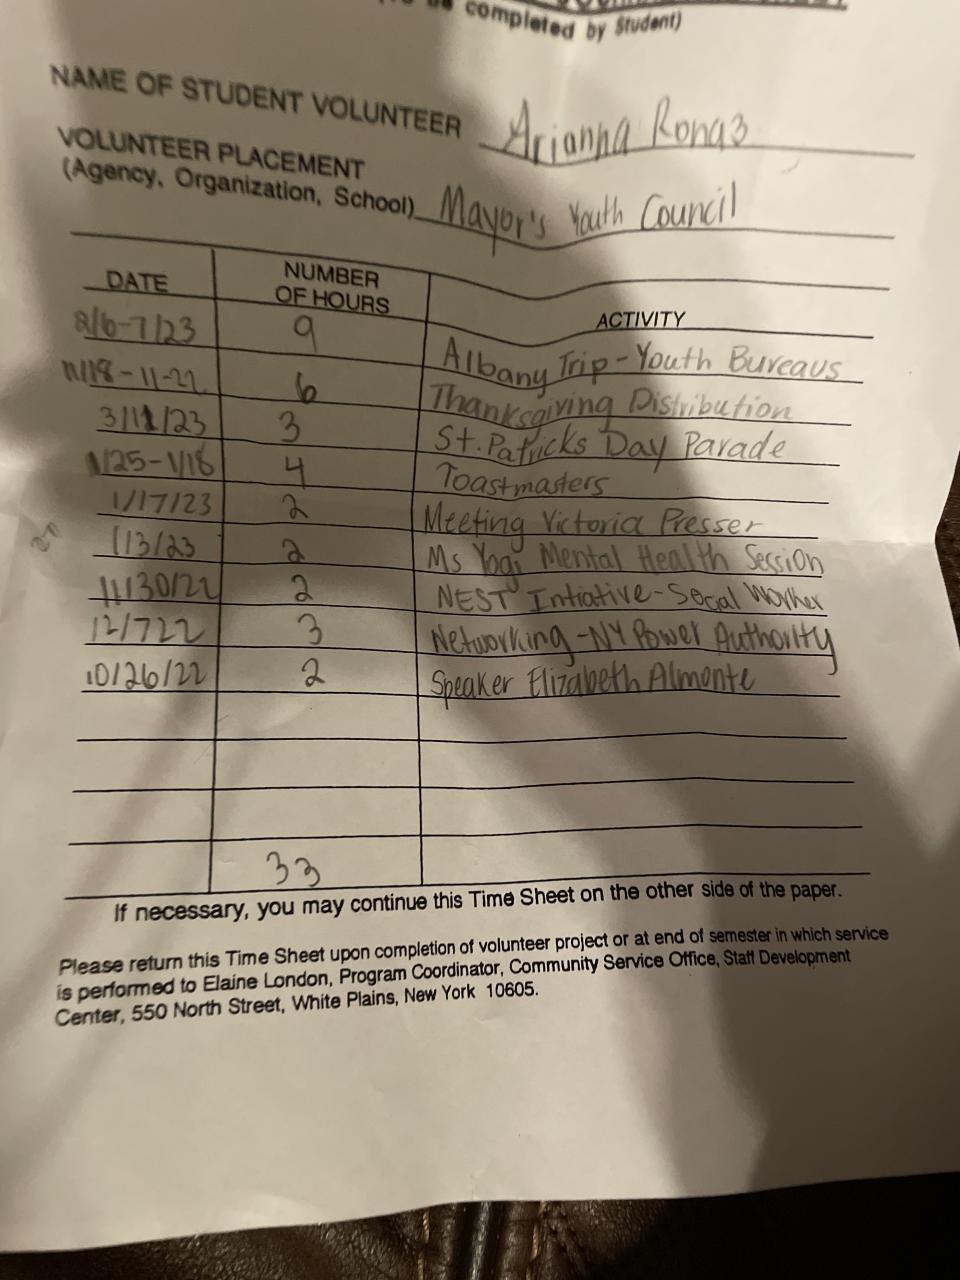 completed by Student)
NAME OF STUDENT VOLUNTEER Arianna Ronaz
VOLUNTEER PLACEMENT
(Agency, Organization, School) Mayor's Youth Council
DATE NUMBER OF HOURS ACTIVITY
2/6-7/23 9 Albany Trip-Youth Bureaus
11/18-11-22 6 Thanksgiving Distribution
3/11/23 3 St. Patricks Day Parade
1/25-1/18 4 Toastmasters
1/17/23 2 Meeting Victoria Presser
1/3/23 2 Ms Yogi Mental Health Session
11/30/22 2 NEST Intiative-Social Worker
12/722 3 Networking-NY Power Authority
10/26/22 2 Speaker Elizabeth Almonte
33
If necessary, you may continue this Time Sheet on the other side of the paper.
Please return this Time Sheet upon completion of volunteer project or at end of semester in which service
is performed to Elaine London, Program Coordinator, Community Service Office, Staff Development
Center, 550 North Street, White Plains, New York 10605.